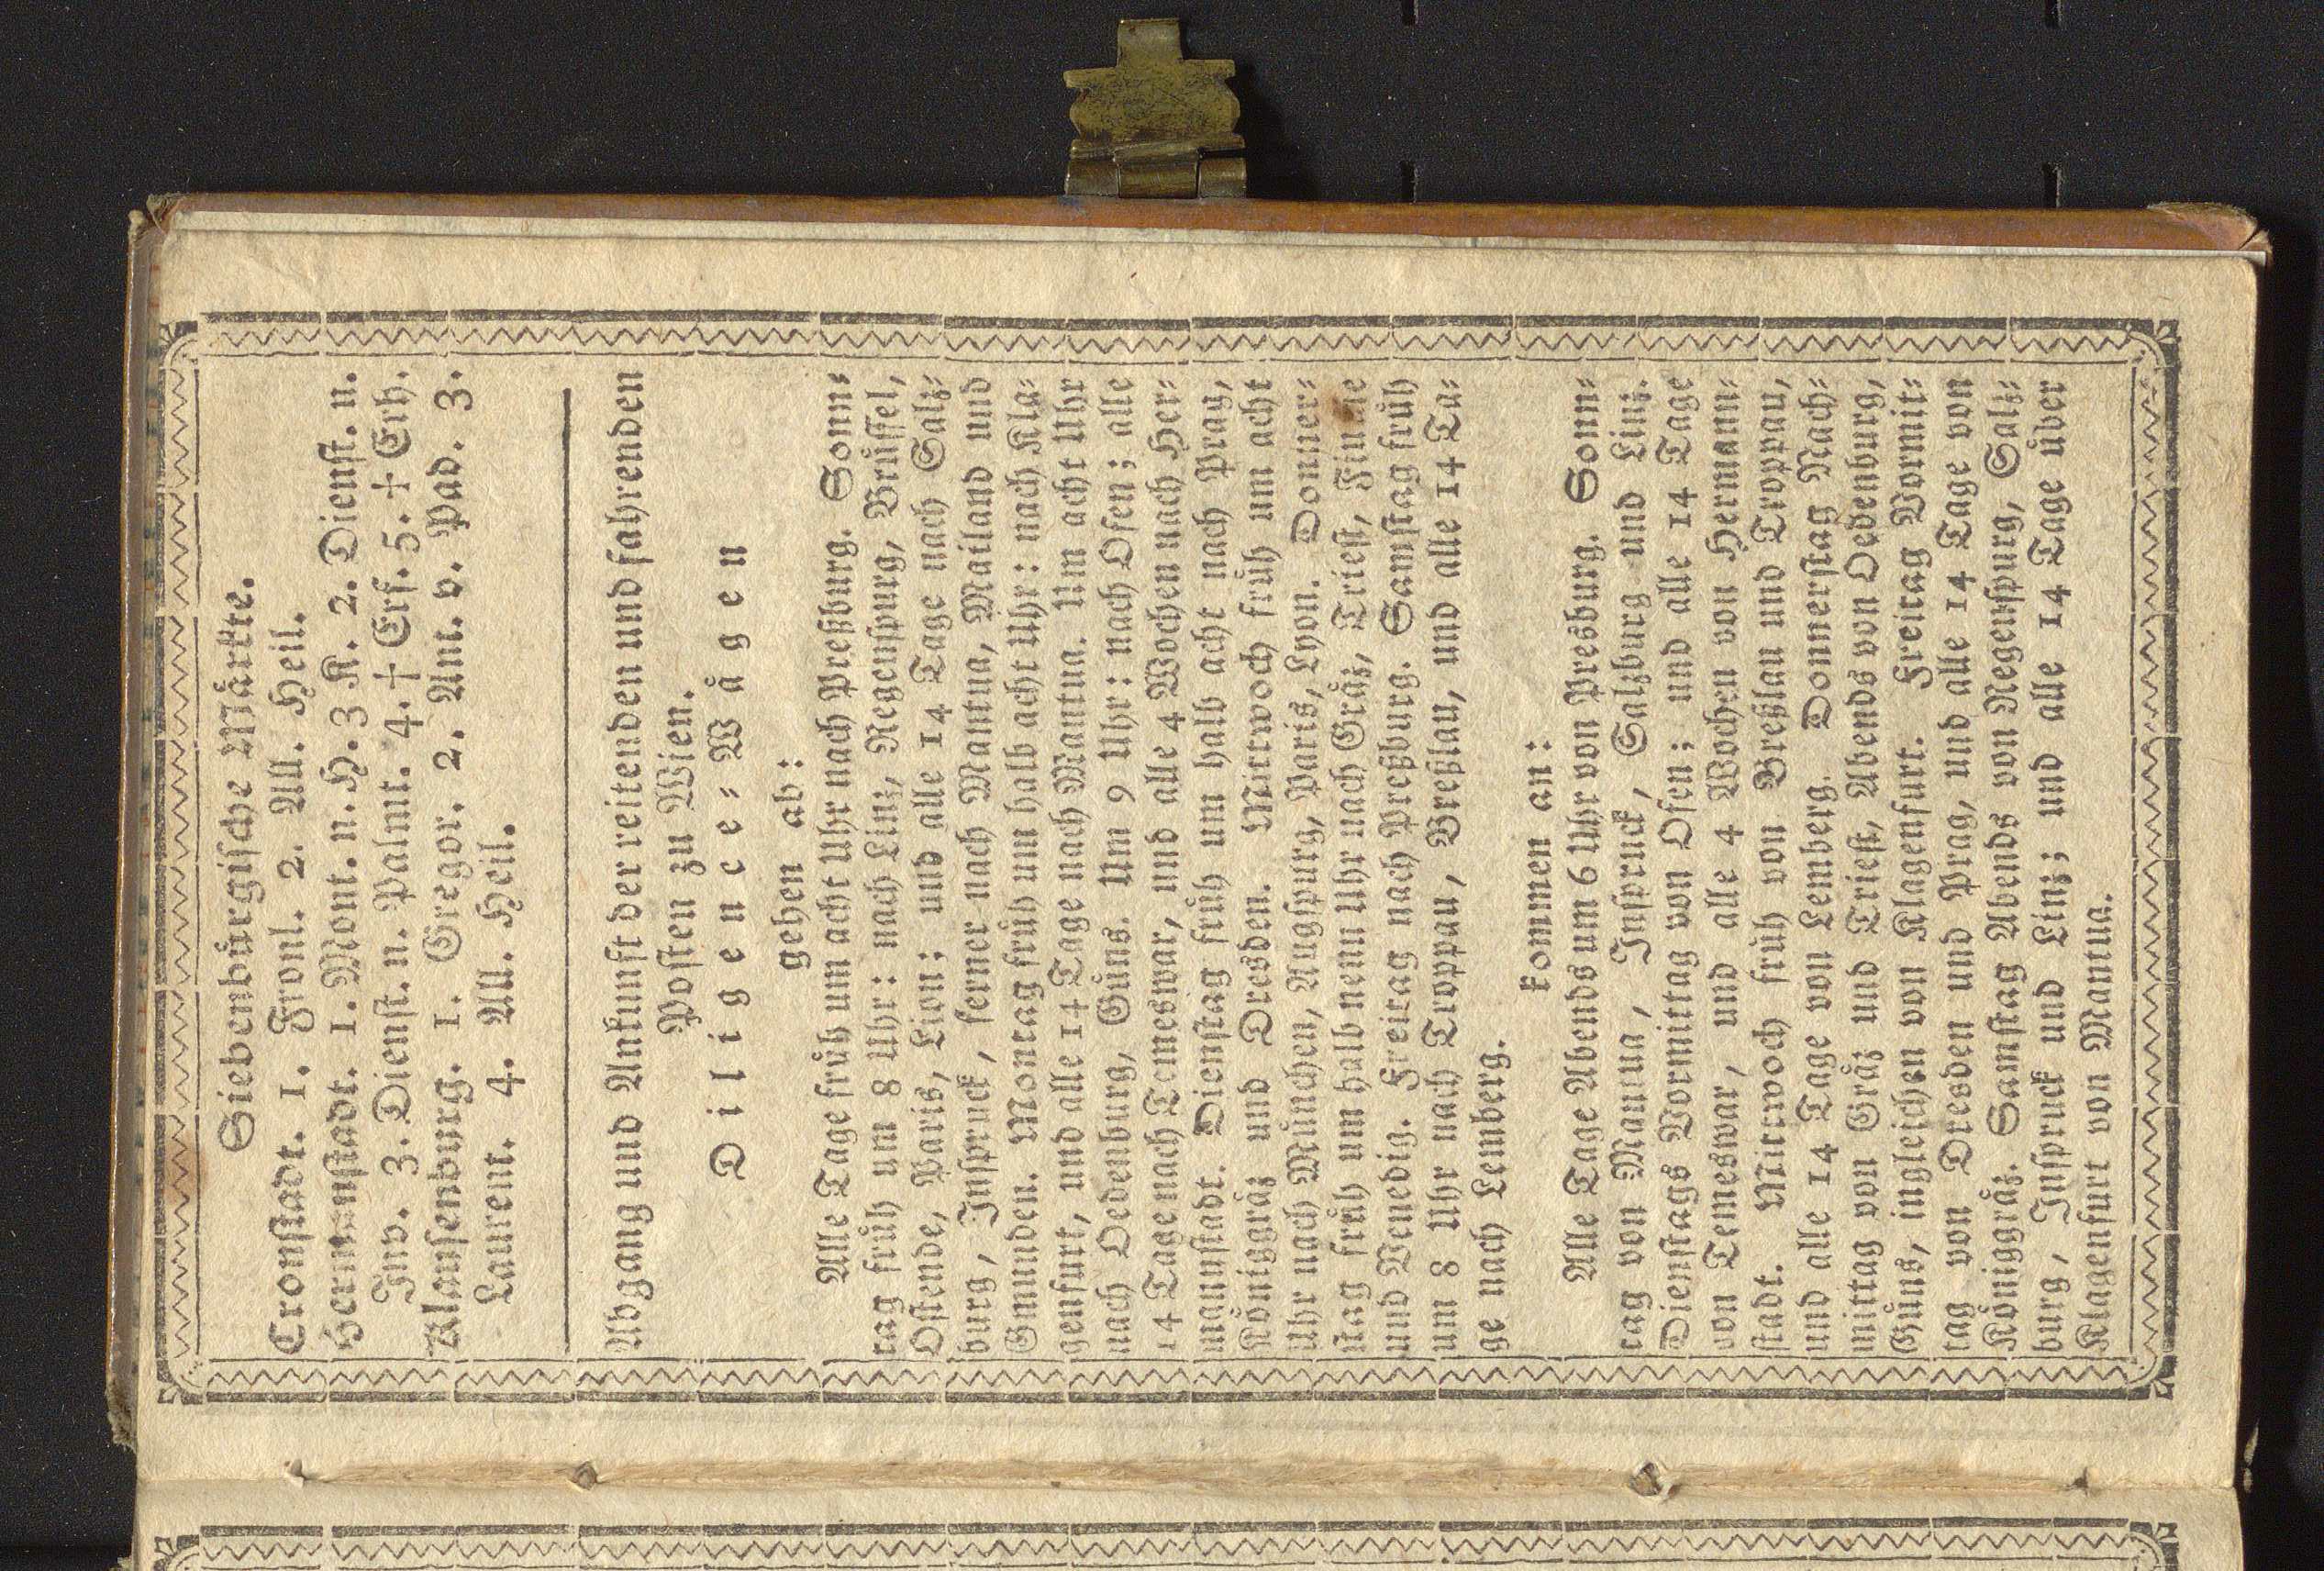 Siebenbürgische Märkte.
Cronstadt. 1. Fronl. 2. All. Heil.
Hermannstadt. 1. Mont. n. H. 3 K. 2. Dienst. n.
Inv. 3. Dienst. n. Palmt. 4. † Erf. 5. † Erh.
Klausenburg. 1. Gregor. 2. Ant. v. Pad. 3.
Laurent. 4. All. Heil.
Abgang und Ankunft der reitenden und fahrenden
Posten zu Wien.
Diligence-Wägen
gehen ab:
Alle Tage früh um acht Uhr nach Preßburg. Sonn-
tag früh um 8 Uhr: nach Linz, Regenspurg, Brüssel,
Ostende, Paris, Lion; und alle 14 Tage nach Salz-
burg, Inspruck, ferner nach Mantua, Mailand und
Gmunden. Montag früh um halb acht Uhr: nach Kla-
genfurt, und alle 14 Tage nach Mantua. Um acht Uhr
nach Oedenburg, Güns. Um 9 Uhr: nach Ofen; alle
14 Tage nach Temeswar, und alle 4 Wochen nach Her-
mannstadt. Dienstag früh um halb acht nach Prag,
Königgräz und Dresden. Mittwoch früh um acht
Uhr nach München, Augspurg, Paris, Lyon. Donner-
stag früh um halb neun Uhr nach Gräz, Triest, Fiume
und Venedig. Freitag nach Preßburg. Samstag früh
um 8 Uhr nach Troppau, Breßlau, und alle 14 Ta-
ge nach Lemberg.
kommen an:
Alle Tage Abends um 6 Uhr von Presburg. Sonn-
tag von Mantua, Inspruck, Salzburg und Linz.
Dienstags Vormittag von Ofen; und alle 14 Tage
von Temeswar, und alle 4 Wochen von Hermann-
stadt. Mittwoch früh von Breßlau und Troppau,
und alle 14 Tage von Lemberg. Donnerstag Nach-
mittag von Gräz und Triest, Abends von Oedenburg,
Güns, ingleichen von Klagenfurt. Freitag Vormit-
tag von Dresden und Prag, und alle 14 Tage von
Königgräz. Samstag Abends von Regenspurg, Salz-
burg, Inspruck und Linz; und alle 14 Tage über
Klagenfurt von Mantua.